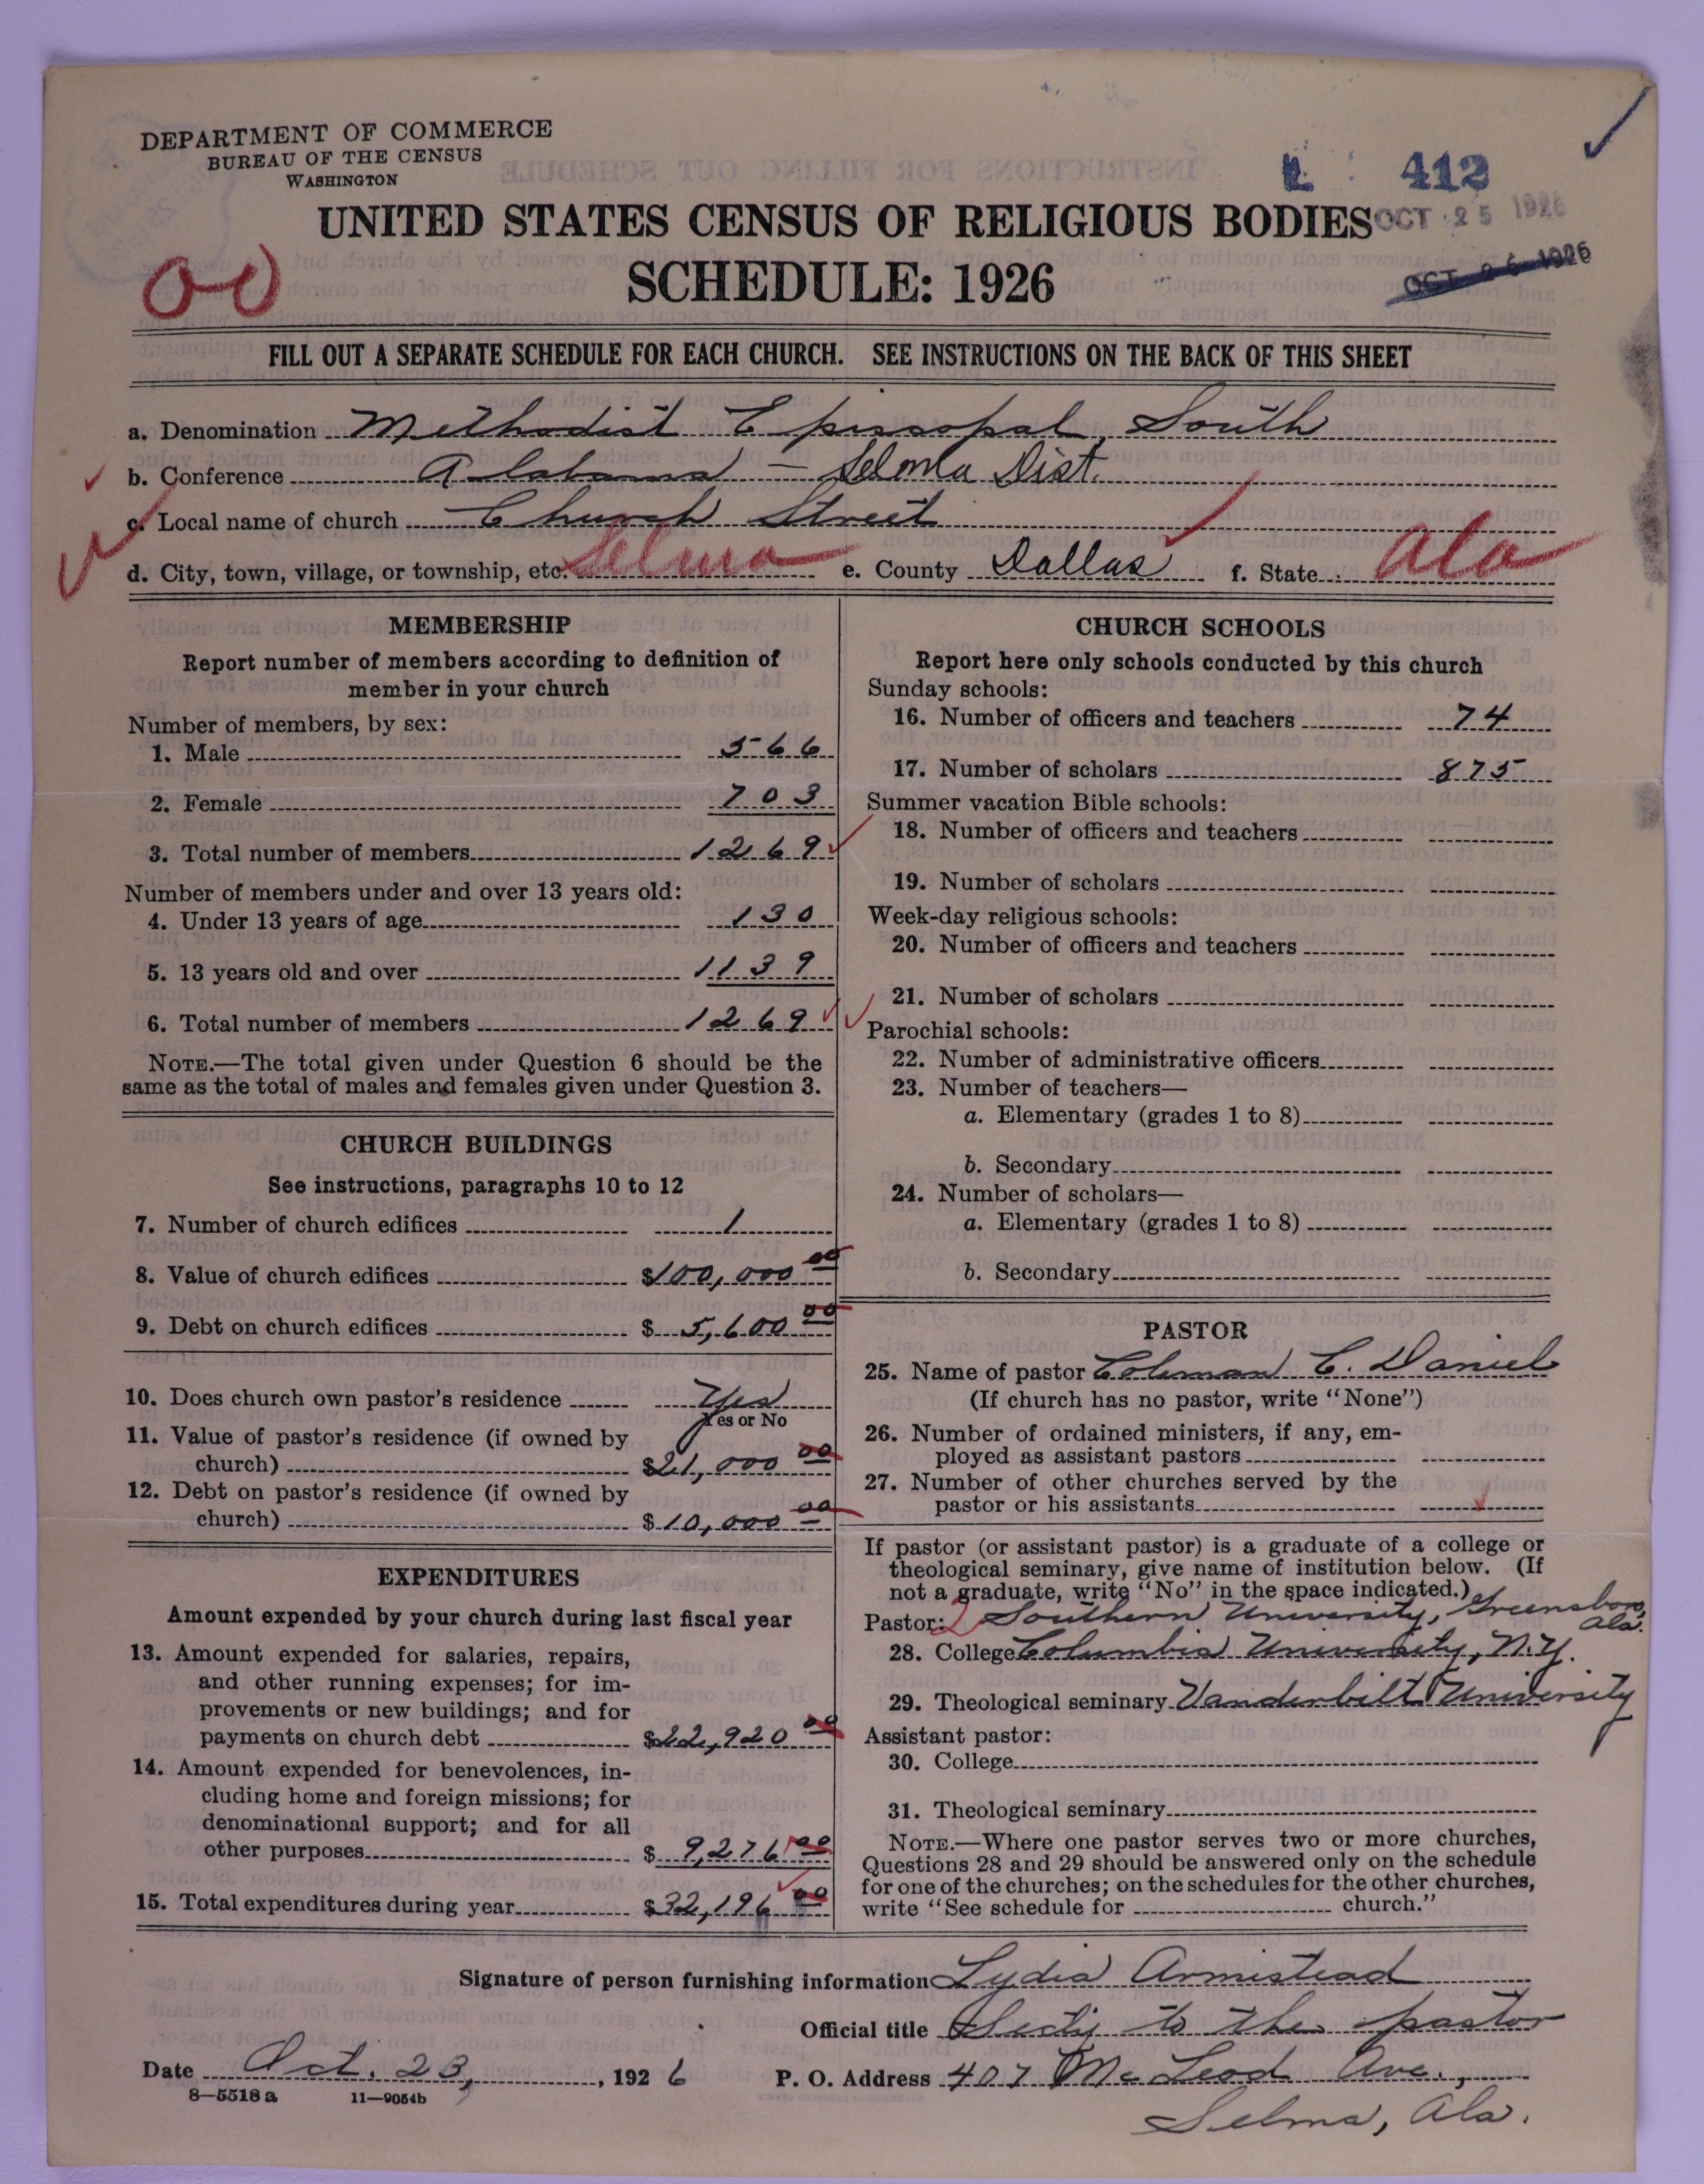 DEPARTMENT OF COMMERCE
BUREAU OF THE CENSUS
WASHINGTON
412
UNITED STATES CENSUS OF RELIGIOUS BODIES
OCT 25 1926
SCHEDULE: 1926
OCT 26 1926
FILL OUT A SEPARATE SCHEDULE FOR EACH CHURCH. SEE INSTRUCTIONS ON THE BACK OF THIS SHEET
a. Denomination Methodist Episcopal, South
b. Conference Alabama - Selma Dist.
c. Local name of church Church Street
d. City, town, village, or township, etc. Selma e. County Dallas f. State Ala
MEMBERSHIP
Report number of members according to definition of
member in your church
Number of members, by sex:
1. Male 566
2. Female 703
3. Total number of members 1269
Number of members under and over 13 years old:
4. Under 13 years of age 130
5. 13 years old and over 1139
6. Total number of members 1269
NOTE.—The total given under Question 6 should be the
same as the total of males and females given under Question 3.
CHURCH BUILDINGS
See instructions, paragraphs 10 to 12
7. Number of church edifices 1
8. Value of church edifices $100,000 00
9. Debt on church edifices $ 5,600 00
10. Does church own pastor's residence Yes
Yes or No
11. Value of pastor's residence (if owned by
church) $21,000 00
12. Debt on pastor's residence (if owned by
church) $10,000 00
EXPENDITURES
Amount expended by your church during last fiscal year
13. Amount expended for salaries, repairs,
and other running expenses; for im-
provements or new buildings; and for
payments on church debt $22,920 00
14. Amount expended for benevolences, in-
cluding home and foreign missions; for
denominational support; and for all
other purposes $ 9,276 00
15. Total expenditures during year $32,196 00
CHURCH SCHOOLS
Report here only schools conducted by this church
Sunday schools:
16. Number of officers and teachers 74
17. Number of scholars 875
Summer vacation Bible schools:
18. Number of officers and teachers
19. Number of scholars
Week-day religious schools:
20. Number of officers and teachers
21. Number of scholars
Parochial schools:
22. Number of administrative officers
23. Number of teachers—
a. Elementary (grades 1 to 8)
b. Secondary
24. Number of scholars—
a. Elementary (grades 1 to 8)
b. Secondary
PASTOR
25. Name of pastor Coleman C. Daniel
(If church has no pastor, write "None")
26. Number of ordained ministers, if any, em-
ployed as assistant pastors
27. Number of other churches served by the
pastor or his assistants
If pastor (or assistant pastor) is a graduate of a college or
theological seminary, give name of institution below. (If
not a graduate, write "No" in the space indicated.)
Pastor: Southern University, Greensboro, Ala.
28. College Columbia University, N.Y.
29. Theological seminary Vanderbilt University
Assistant pastor:
30. College
31. Theological seminary
NOTE.—Where one pastor serves two or more churches,
Questions 28 and 29 should be answered only on the schedule
for one of the churches; on the schedules for the other churches,
write "See schedule for church."
Signature of person furnishing information Lydia Armistead
Official title Sec'ty to the pastor
Date Oct. 23, 1926 P. O. Address 407 McLeod Ave.,
8—5518a 11—9054b
Selma, Ala.